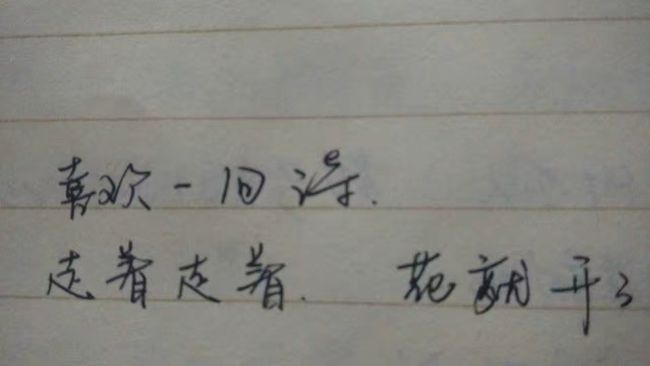 喜欢一回得.
走着走着. 花就开了